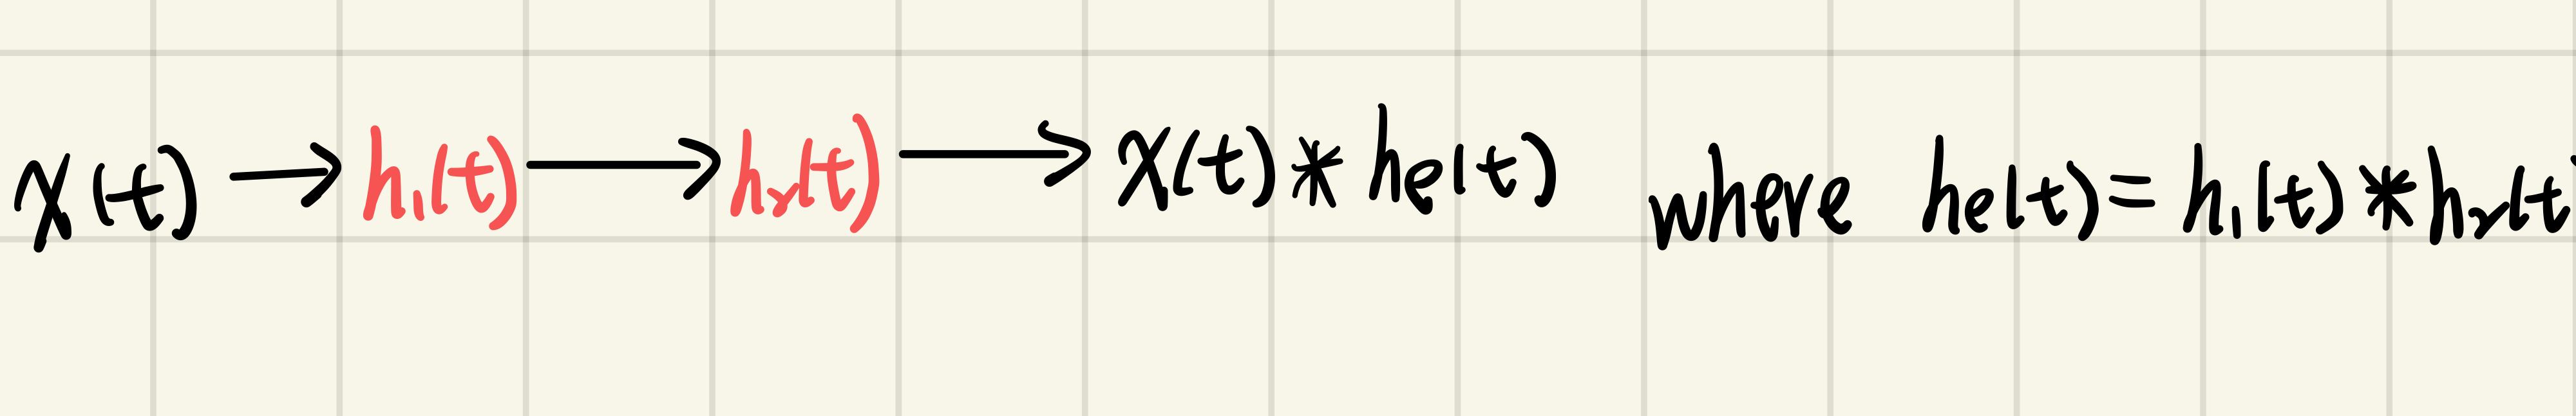 x(t) → h₁(t) → h₂(t) → x(t) * he(t) where he(t) = h₁(t) * h₂(t